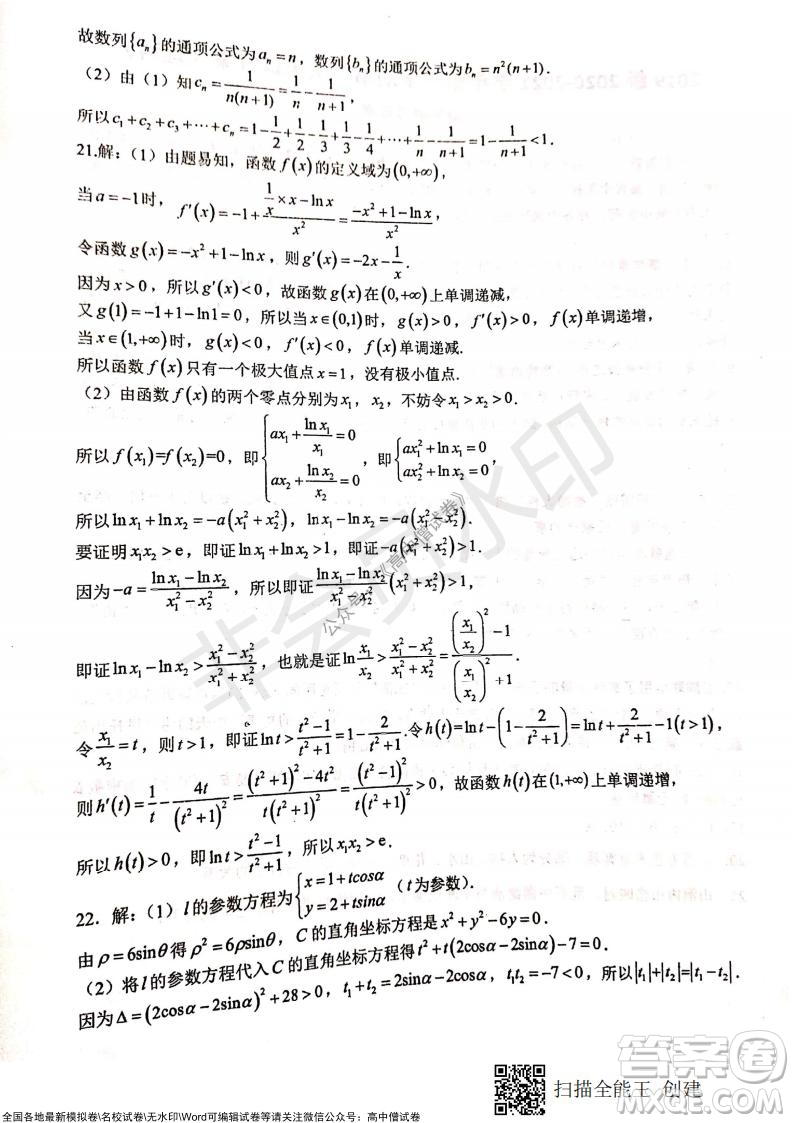 故数列{aₙ}的通项公式为aₙ=n，数列{bₙ}的通项公式为bₙ=n²(n+1).
（2）由（1）知cₙ=1/(n(n+1))=1/n-1/(n+1)，
所以c₁+c₂+c₃+⋯+cₙ=1-1/2+1/2-1/3+1/3-1/4+⋯+1/n-1/(n+1)=1-1/(n+1)<1.
21.解：（1）由题易知，函数f(x)的定义域为(0,+∞)，
当a=-1时，f′(x)=-1+(1/x×x-lnx)/x²=(-x²+1-lnx)/x²，
令函数g(x)=-x²+1-lnx，则g′(x)=-2x-1/x.
因为x>0，所以g′(x)<0，故函数g(x)在(0,+∞)上单调递减，
又g(1)=-1+1-ln1=0，所以当x∈(0,1)时，g(x)>0，f′(x)>0，f(x)单调递增，
当x∈(1,+∞)时，g(x)<0，f′(x)<0，f(x)单调递减.
所以函数f(x)只有一个极大值点x=1，没有极小值点.
（2）由函数f(x)的两个零点分别为x₁，x₂，不妨令x₁>x₂>0.
所以f(x₁)=f(x₂)=0，即{ax₁+lnx₁/x₁=0 ax₂+lnx₂/x₂=0，即{ax₁²+lnx₁=0 ax₂²+lnx₂=0.
所以lnx₁+lnx₂=-a(x₁²+x₂²)，lnx₁-lnx₂=-a(x₁²-x₂²).
要证明x₁x₂>e，即证lnx₁+lnx₂>1，即证-a(x₁²+x₂²)>1，
因为-a=(lnx₁-lnx₂)/(x₁²-x₂²)，所以即证(lnx₁-lnx₂)/(x₁²-x₂²)(x₁²+x₂²)>1，
即证lnx₁-lnx₂>(x₁²-x₂²)/(x₁²+x₂²)，也就是证ln x₁/x₂>(x₁²-x₂²)/(x₁²+x₂²)=((x₁/x₂)²-1)/((x₁/x₂)²+1).
令x₁/x₂=t，则t>1，即证lnt>(t²-1)/(t²+1)=1-2/(t²+1).令h(t)=lnt-(1-2/(t²+1))=lnt+2/(t²+1)-1(t>1)，
则h′(t)=1/t-4t/(t²+1)²=((t²+1)²-4t²)/(t(t²+1)²)=(t²-1)²/(t(t²+1)²)>0，故函数h(t)在(1,+∞)上单调递增，
所以h(t)>0，即lnt>(t²-1)/(t²+1)，所以x₁x₂>e.
22. 解：（1）l的参数方程为{x=1+tcosα y=2+tsinα（t为参数）.
由ρ=6sinθ得ρ²=6ρsinθ，C的直角坐标方程是x²+y²-6y=0.
（2）将l的参数方程代入C的直角坐标方程得t²+t(2cosα-2sinα)-7=0.
因为Δ=(2cosα-2sinα)²+28>0，t₁+t₂=2sinα-2cosα，t₁t₂=-7<0，所以|t₁|+|t₂|=|t₁-t₂|.
非会员水印
公众号《高中僧试卷》
扫描全能王 创建
答案圈
全国各地最新模拟卷\名校试卷\无水印\Word可编辑试卷等请关注微信公众号：高中僧试卷